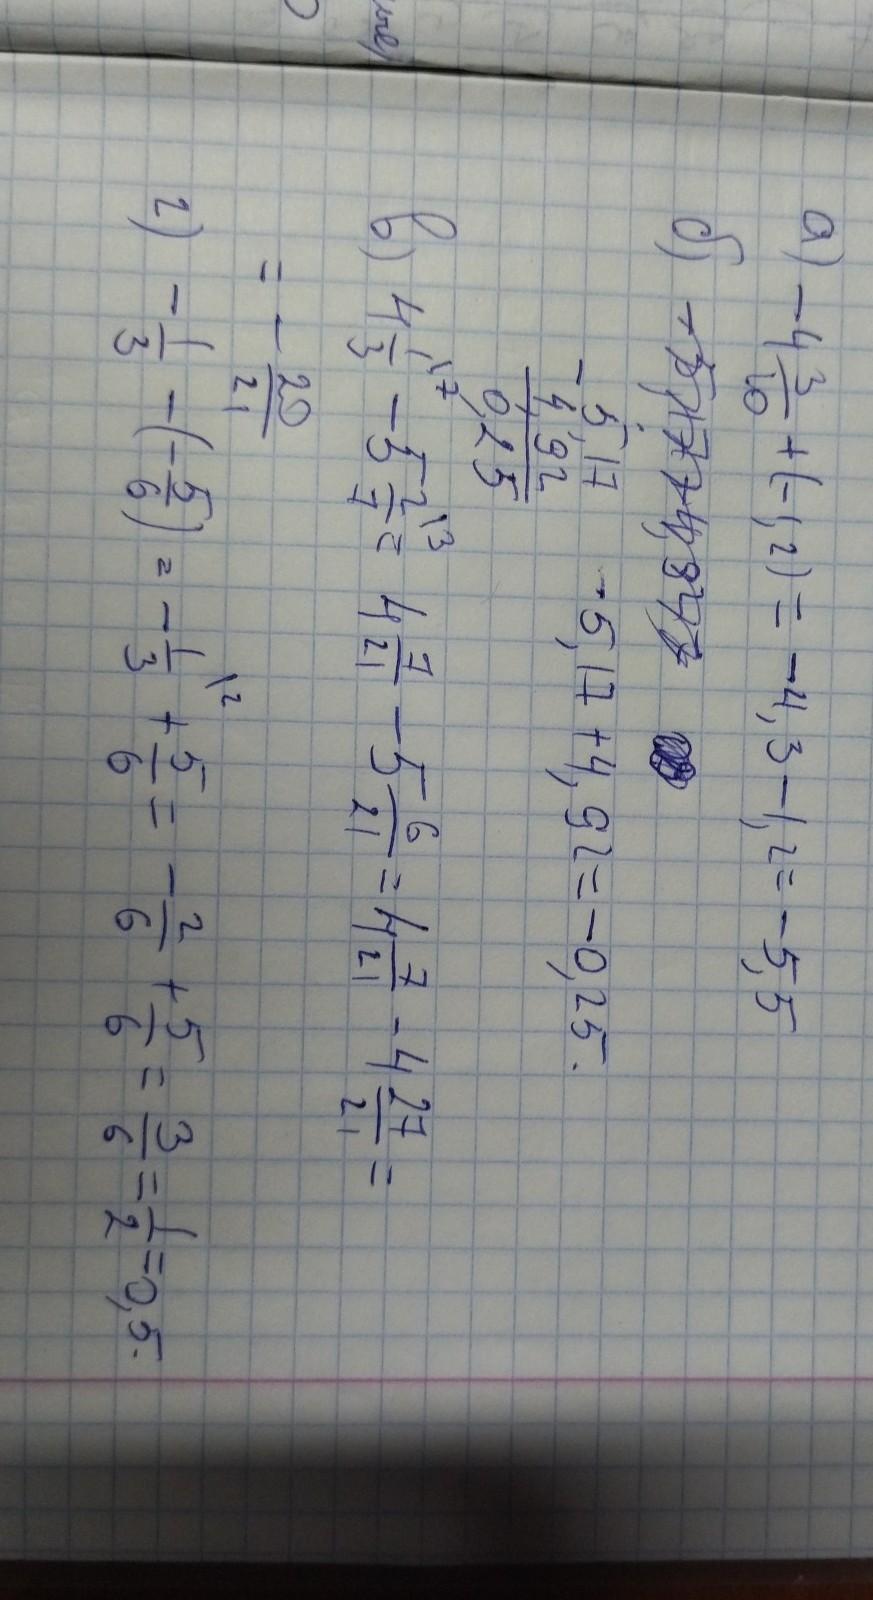 а) -4 3/10 + (-1,2) = -4,3 - 1,2 = -5,5
б)
-5,17 + 4,92 = -0,25.
- 5,17
4,92
0,25
в) 4 1/3 \7 - 5 2/7 \3 = 4 7/21 - 5 6/21 = 4 7/21 - 4 27/21 =
= - 20/21
г) - 1/3 - (- 5/6) = - 1/3 \2 + 5/6 = - 2/6 + 5/6 = 3/6 = 1/2 = 0,5.